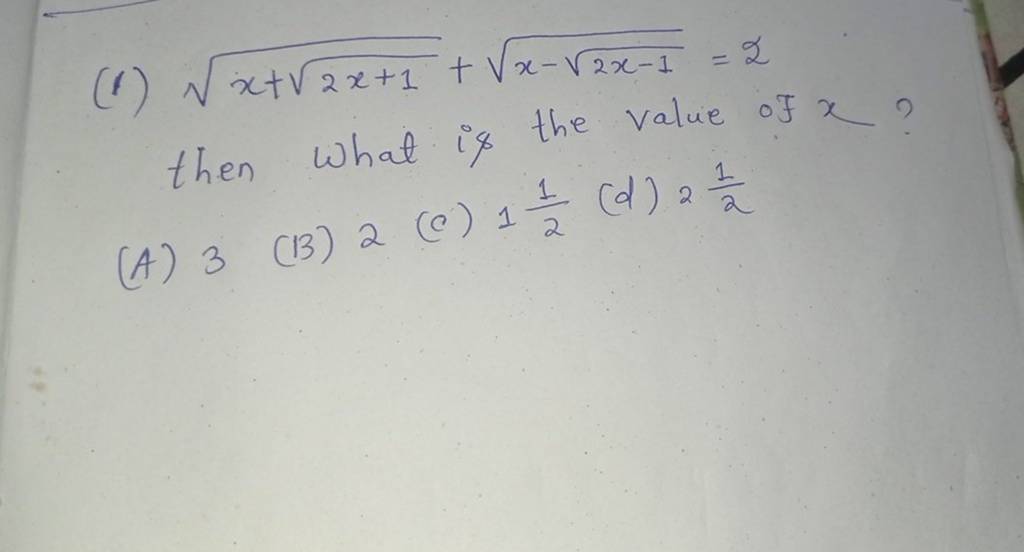 (1) √(x+√(2x+1)) + √(x-√(2x-1)) = 2
then what is the value of x ?
(A) 3 (B) 2 (c) 1 1/2 (d) 2 1/2